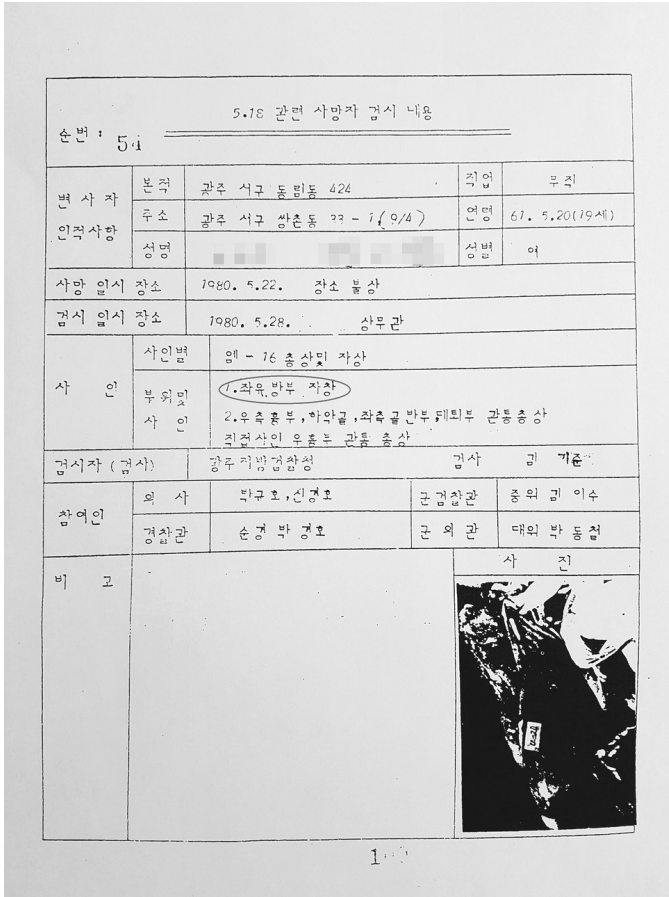 5.18 관련 사망자 검시 내용
순번 : 54
변사자 인적사항
본적 광주 서구 동림동 424
직업 무직
주소 광주 서구 쌍촌동 33 - 1(9/4)
연령 61. 5.20(19세)
성명
성별 여
사망 일시 장소 1980. 5.22. 장소 불상
검시 일시 장소 1980. 5.28. 상무관
사 인
사인별 엠 - 16 총상및 자상
부위및 사 인
1.좌유 방부 자창
2.우측흉부,하악골,좌측골반부,대퇴부 관통총상
직접사인 우흉부 관통 총상
검시자 (검사) 광주지방검찰청 검사 김 기준
참여인
의 사 박규호,신경호
군검찰관 중위 김 이수
경찰관 순경 박 경호
군 의관 대위 박 동철
비 고
사 진